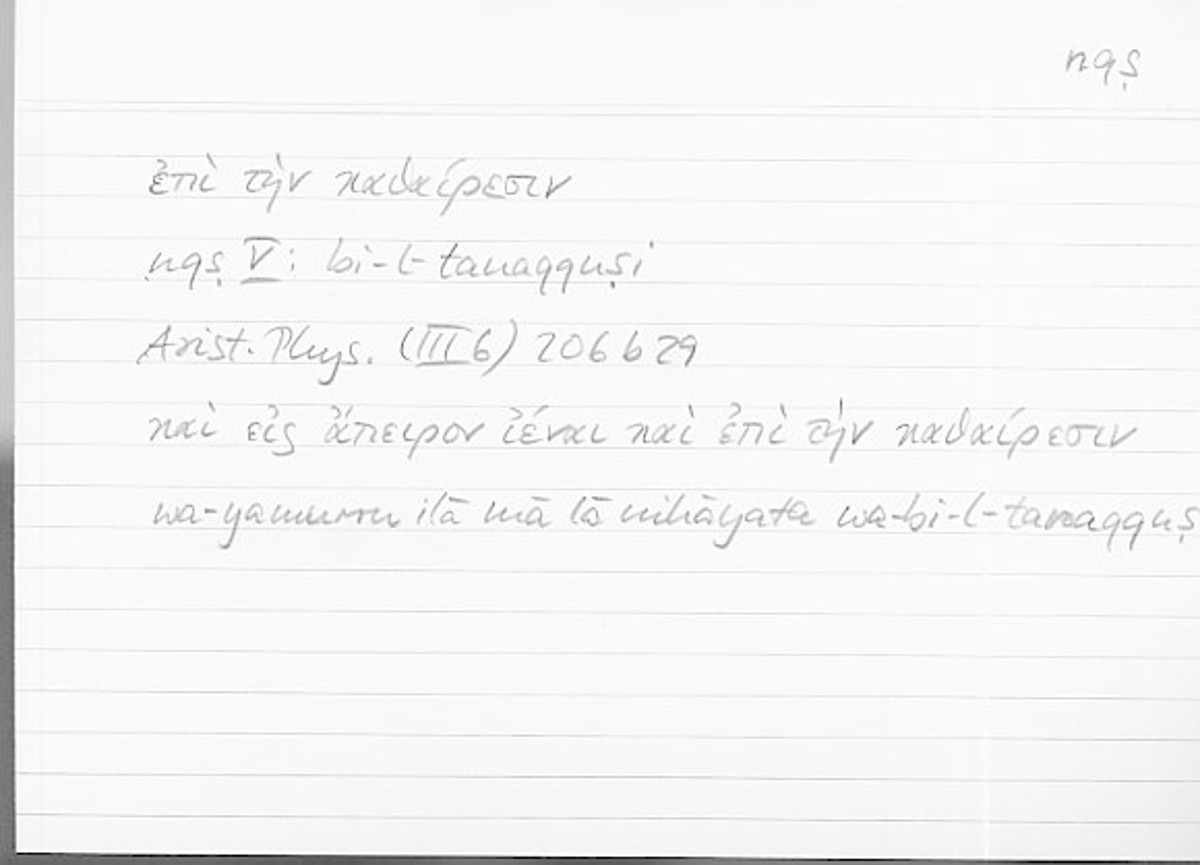 nqṣ
ἐπὶ τὴν καθαίρεσιν
nqṣ V: bi-l-tanaqquṣi
Arist. Phys. (III 6) 206 b 29
καὶ εἰς ἄπειρον ἰέναι καὶ ἐπὶ τὴν καθαίρεσιν
wa-yamurru ilā mā lā nihāyata wa-bi-l-tanaqquṣ